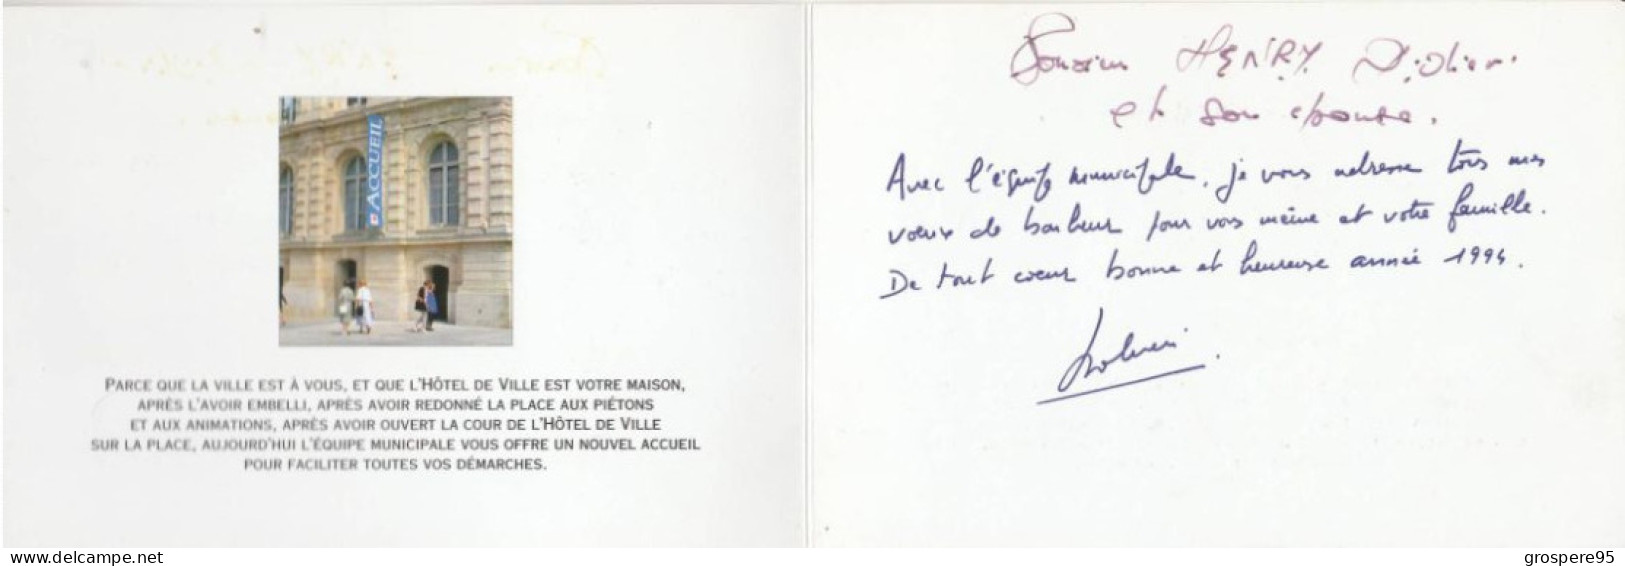 ACCUEIL
PARCE QUE LA VILLE EST À VOUS, ET QUE L'HÔTEL DE VILLE EST VOTRE MAISON,
APRÈS L'AVOIR EMBELLI, APRÈS AVOIR REDONNÉ LA PLACE AUX PIÉTONS
ET AUX ANIMATIONS, APRÈS AVOIR OUVERT LA COUR DE L'HÔTEL DE VILLE
SUR LA PLACE, AUJOURD'HUI L'ÉQUIPE MUNICIPALE VOUS OFFRE UN NOUVEL ACCUEIL
POUR FACILITER TOUTES VOS DÉMARCHES.
Monsieur HENRY Didier
et son épouse.
Avec l'équipe municipale, je vous adresse tous mes
vœux de bonheur pour vous même et votre famille.
De tout cœur bonne et heureuse année 1994.
www.delcampe.net
grospere95